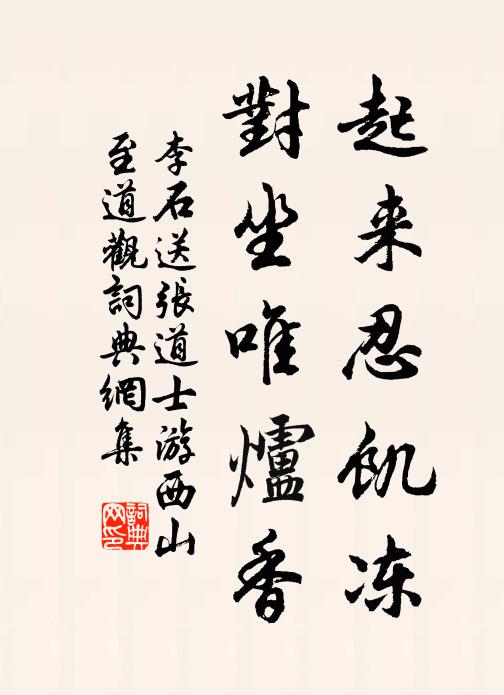 起来忍飢凍
對坐唯爐香
李石送張道士游西山
至道觀詞典網集
詞典
网印